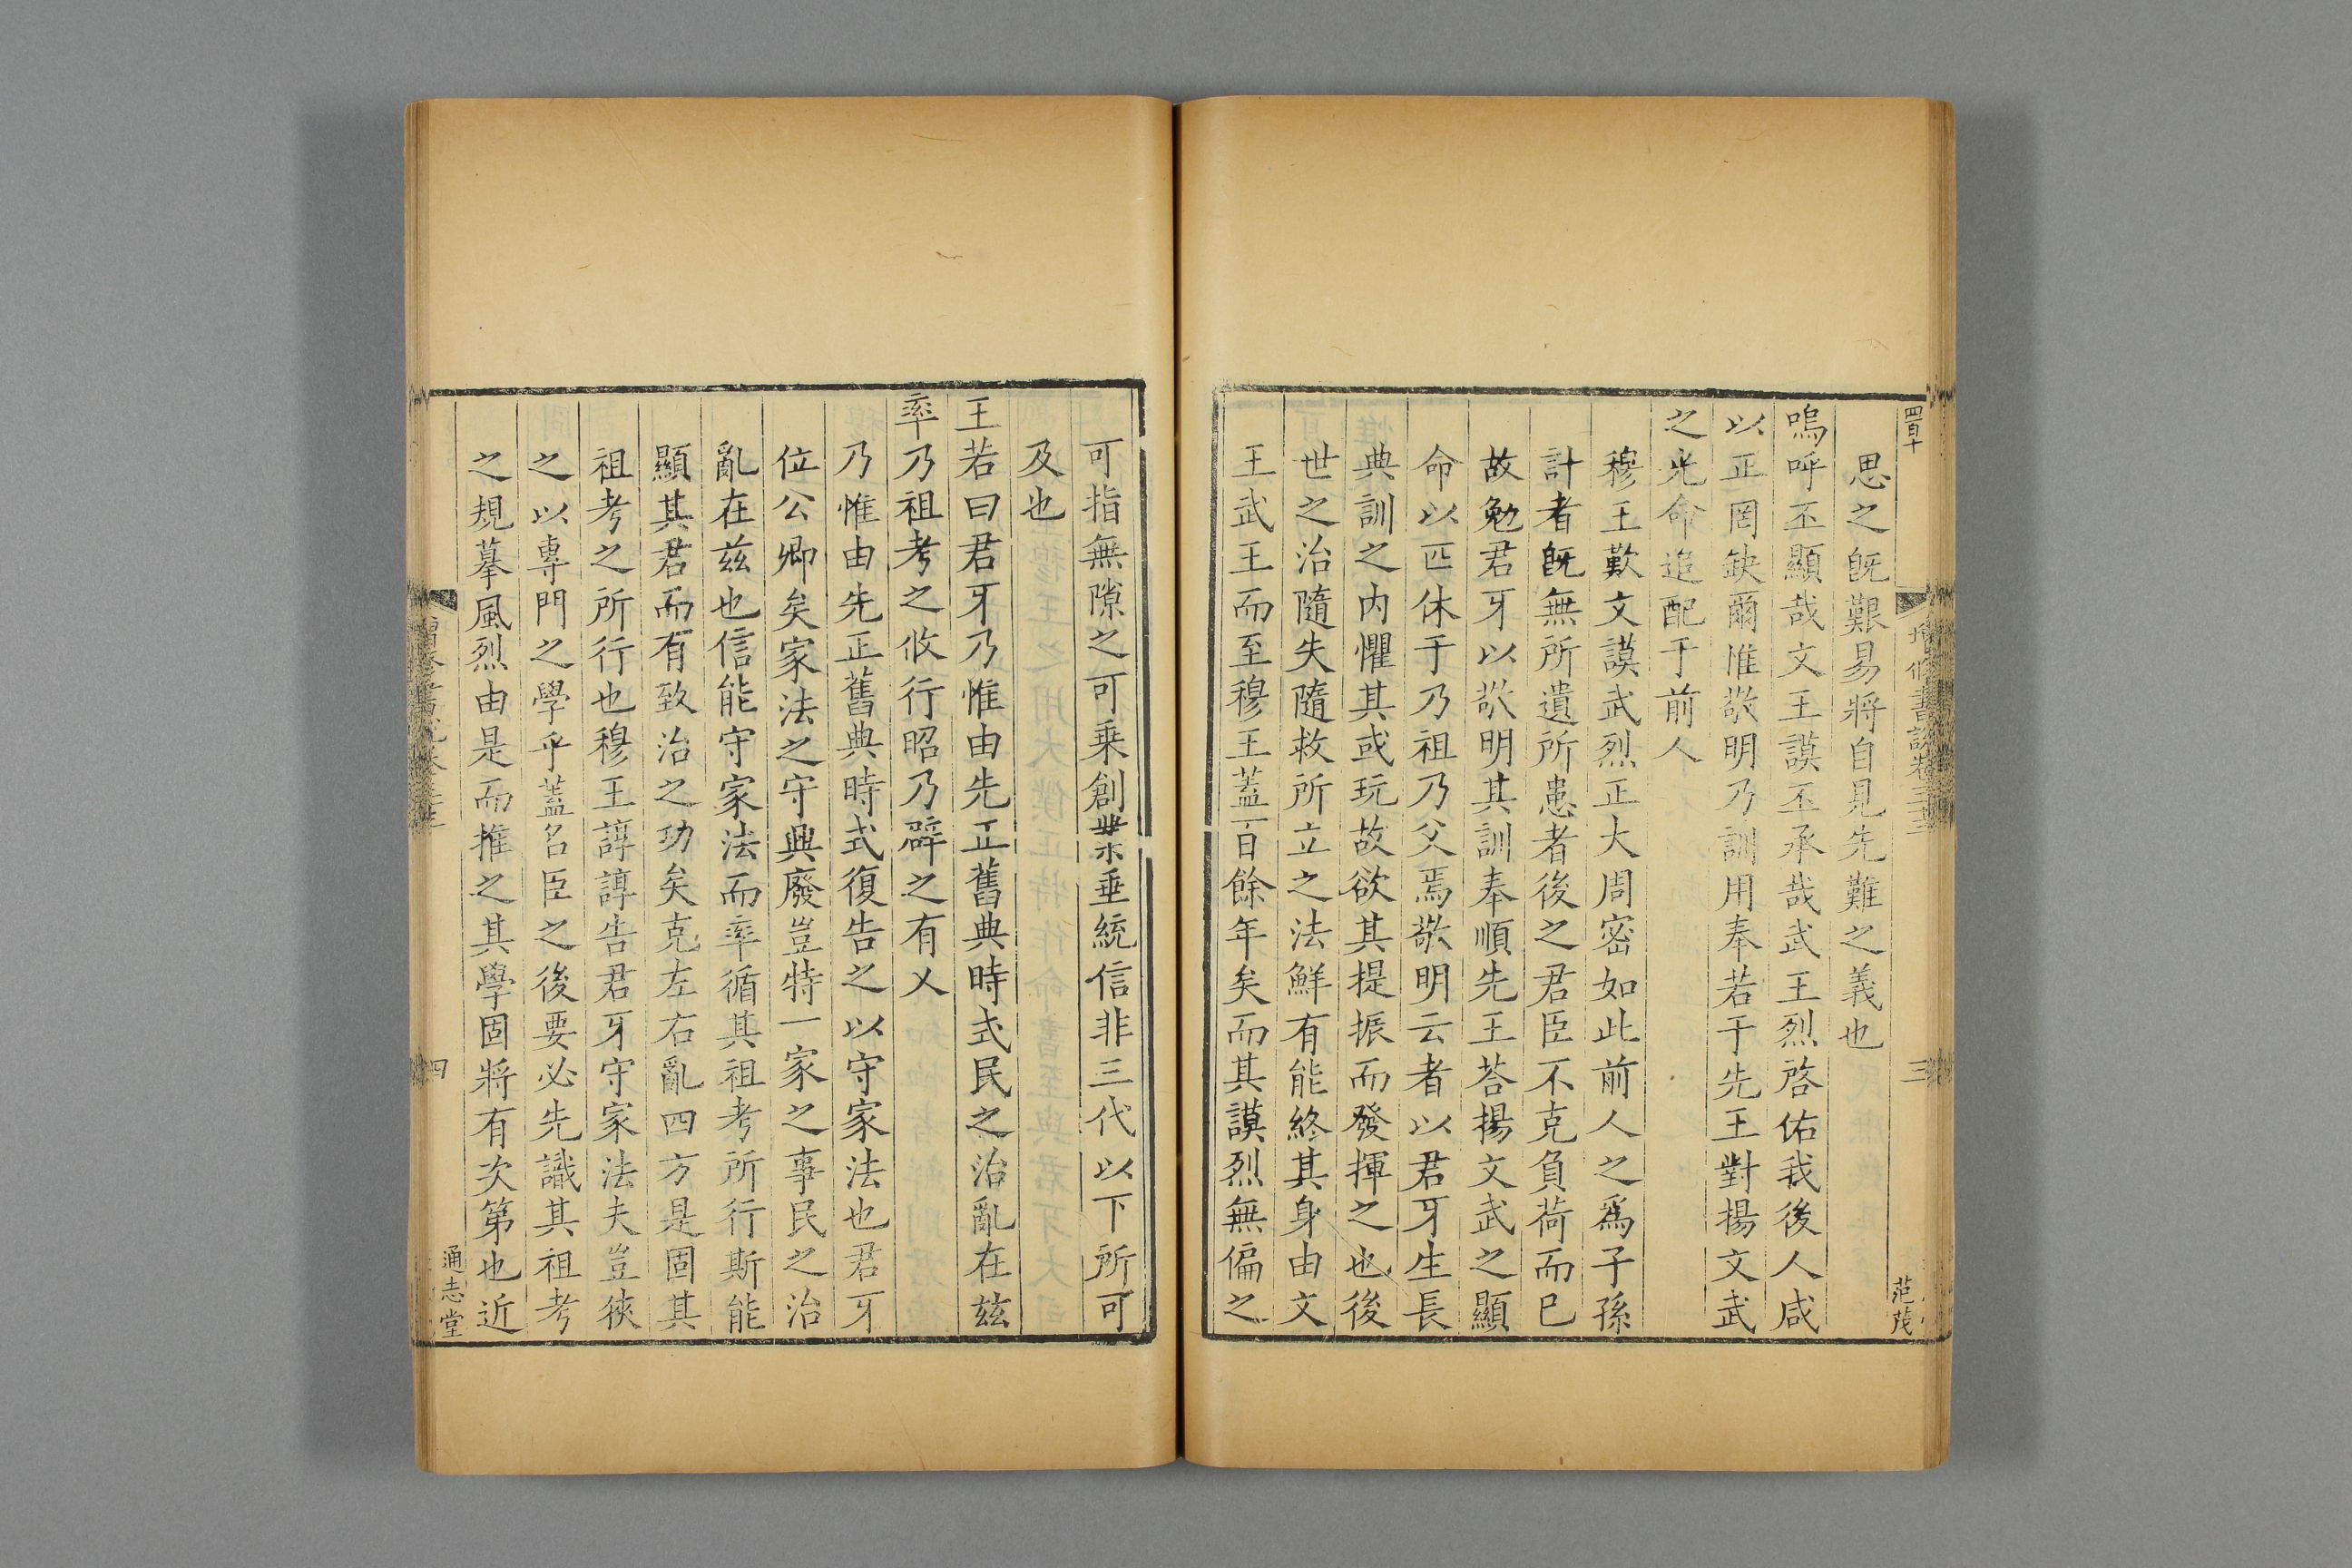 四百十
增修書說卷三十三
三
范茂
思之旣艱易將自見先難之義也
嗚呼丕顯哉文王謨丕承哉武王烈啓佑我後人咸
以正罔缺爾惟敬明乃訓用奉若于先王對揚文武
之光命追配于前人
穆王歎文謨武烈正大周密如此前人之爲子孫
計者旣無所遺所患者後之君臣不克負荷而已
故勉君牙以敬明其訓奉順先王荅揚文武之顯
命以匹休于乃祖乃父焉敬明云者以君牙生長
典訓之内懼其或玩故欲其提振而發揮之也後
世之治隨失隨救所立之法鮮有能終其身由文
王武王而至穆王蓋百餘年矣而其謨烈無偏之
可指無隙之可乗創業垂統信非三代以下所可
及也
王若曰君牙乃惟由先正舊典時式民之治亂在兹
率乃祖考之攸行昭乃辟之有乂
乃惟由先正舊典時式復告之以守家法也君牙
位公卿矣家法之守興廢豈特一家之事民之治
亂在兹也信能守家法而率循其祖考所行斯能
顯其君而有致治之功矣克左右亂四方是固其
祖考之所行也穆王諄諄告君牙守家法夫豈狹
之以專門之學乎蓋名臣之後要必先識其祖考
之規摹風烈由是而推之其學固將有次第也近
四
通志堂